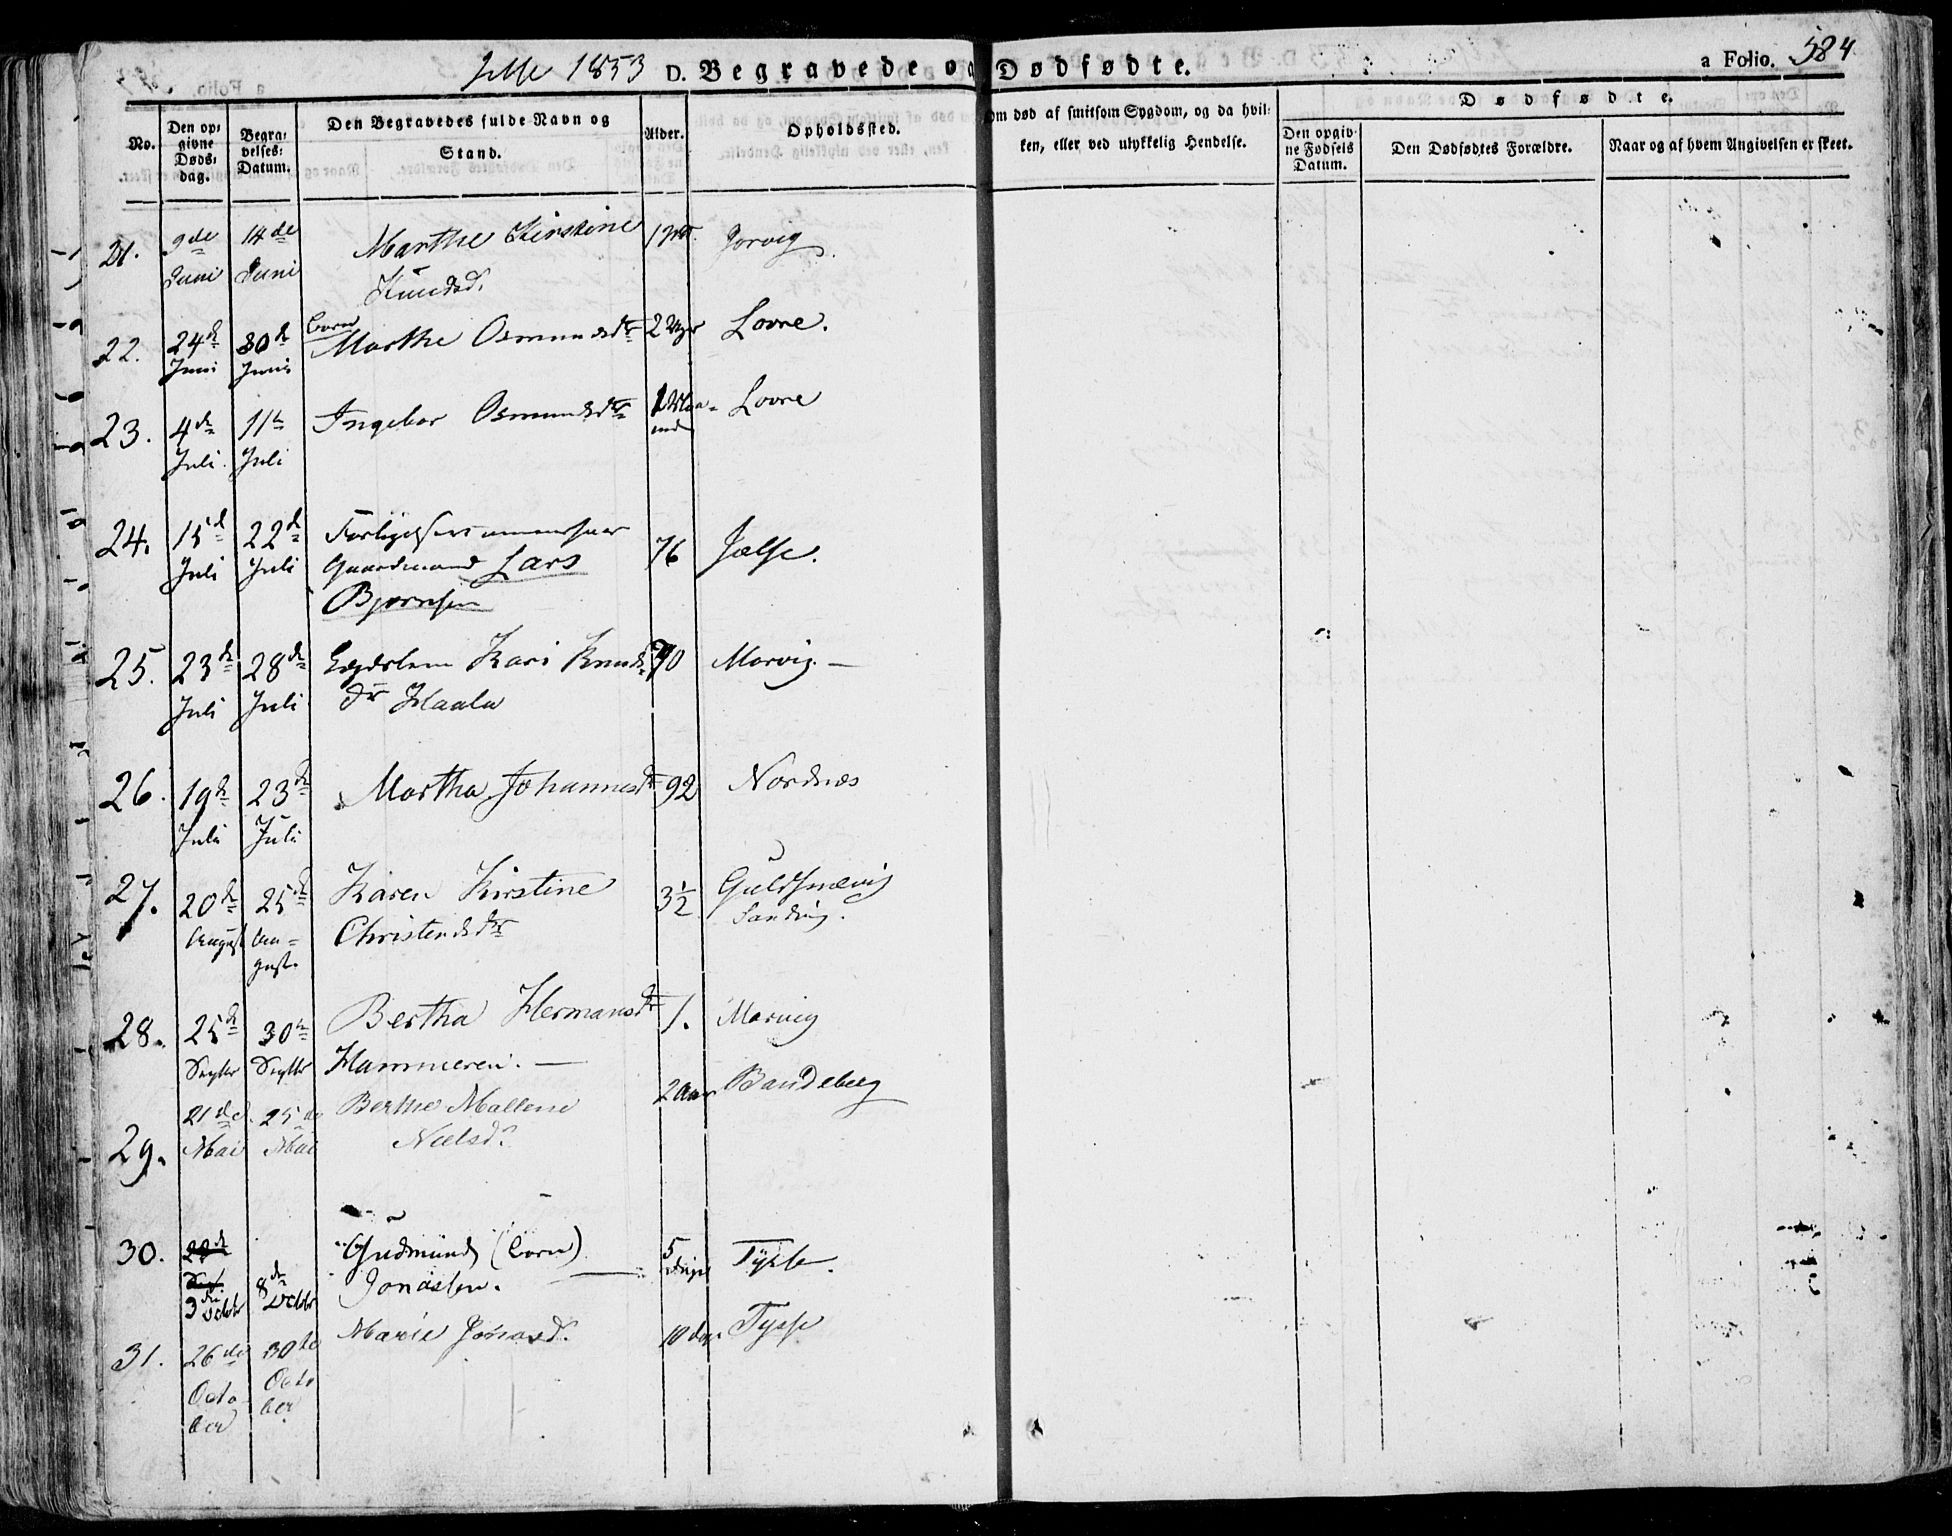 Jelse 1853 D. Begravede og Dødfødte.
a Folio. 584
No.
Den op-
givne
Døds-
dag.
Begra-
velses-
Datum.
Den Begravedes fulde Navn og
Stand.
Alder.
Opholdssted.
Om død af smitsom Sygdom, og da hvil-
ken, eller ved ulykkelig Hendelse.
Dødfødte.
Den opgiv-
ne Fødsels
Datum.
Den Dødfødtes Forældre.
Naar og af hvem Angivelsen er skeet.
21. 9de Juni 14de Juni Marthe Kirstine
Knudsd.
22. 24d Juni 30d Juni Barn Marthe Osmundsdtr 2 Lovre.
23. 4de Juli 11te Juli Ingebor Osmundsdtr Lovre
24. 15d Juli 22d Juli
Gaardmand Lars
Bjørnsen 76 Jælse.
25. 23de Juli 28de Juli Lægdslem Kari Knuds
dtr Haala 70 Marvig. —
26. 19de Juli 23de Juli Martha Johannesdtr 92 Nordnæs
27. 20de August 25de August Karen Kirstine
Christensdtr 3½
Sandvig.
28. 25de Septbr 30te Septbr Bertha Hermansdtr 1. Marvig
Hammeren. —
29. 21de Mai 25de Mai Berthe Mallene
Nielsd. 2 Aar Bandeberg
30. 3die Octobr 8de Octobr Gudmund (Barn)
Jonassen. 5 Dage Tysse.
31. 26de October 30te October Marie Jonasd. 10 dage Tysse